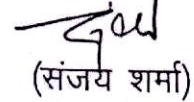 (संजय शर्मा)